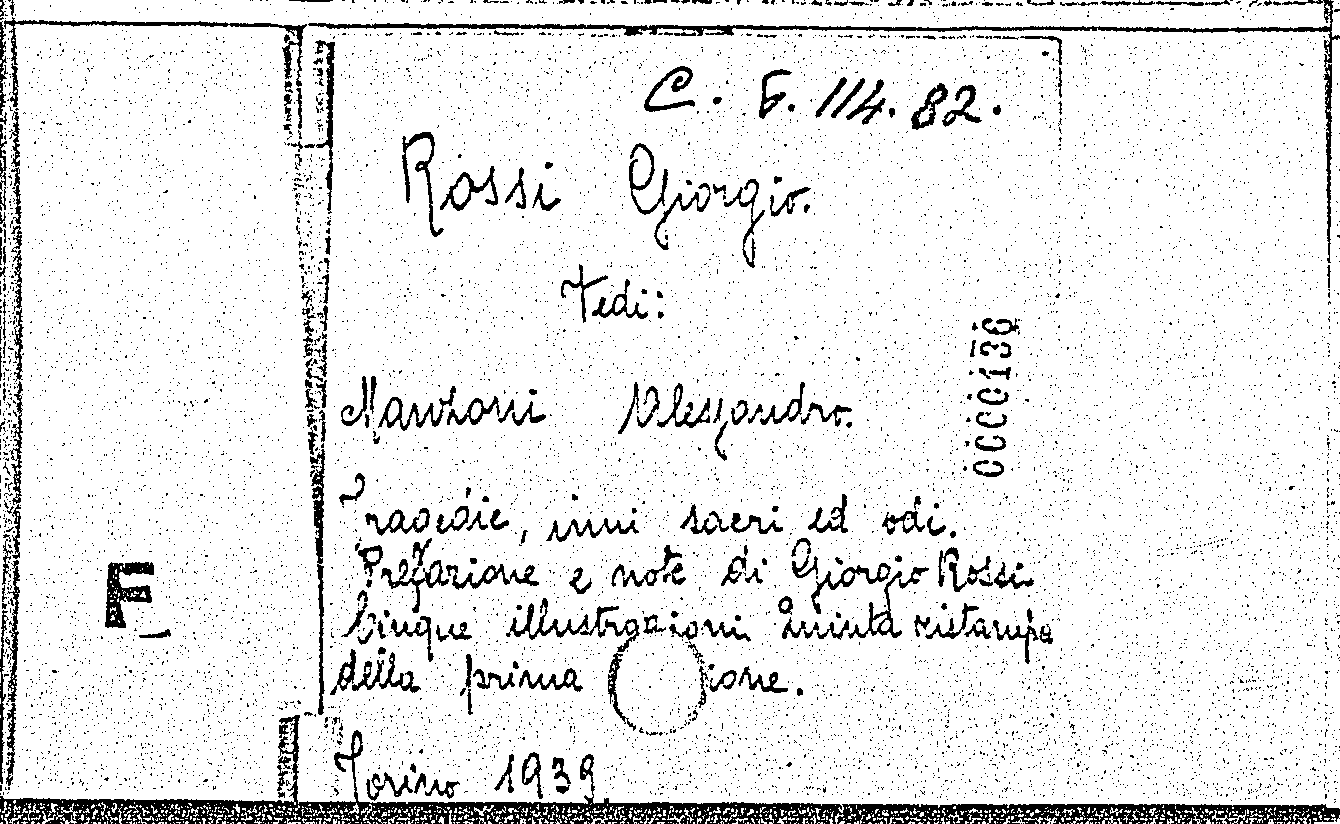 C. 5. 114. 82.
Rossi Giorgio.
Vedi:
Manzoni Alessandro.
0000136
Tragedie, inni sacri ed odi.
Prefazione e note di Giorgio Rossi
Cinque illustrazioni. Quinta ristampa
F
della prima ione.
Torino 1939.